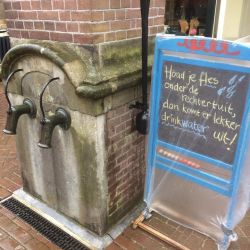 Houd je fles
onder de
rechtertuit,
dan komt er lekker
drinkwater
uit!